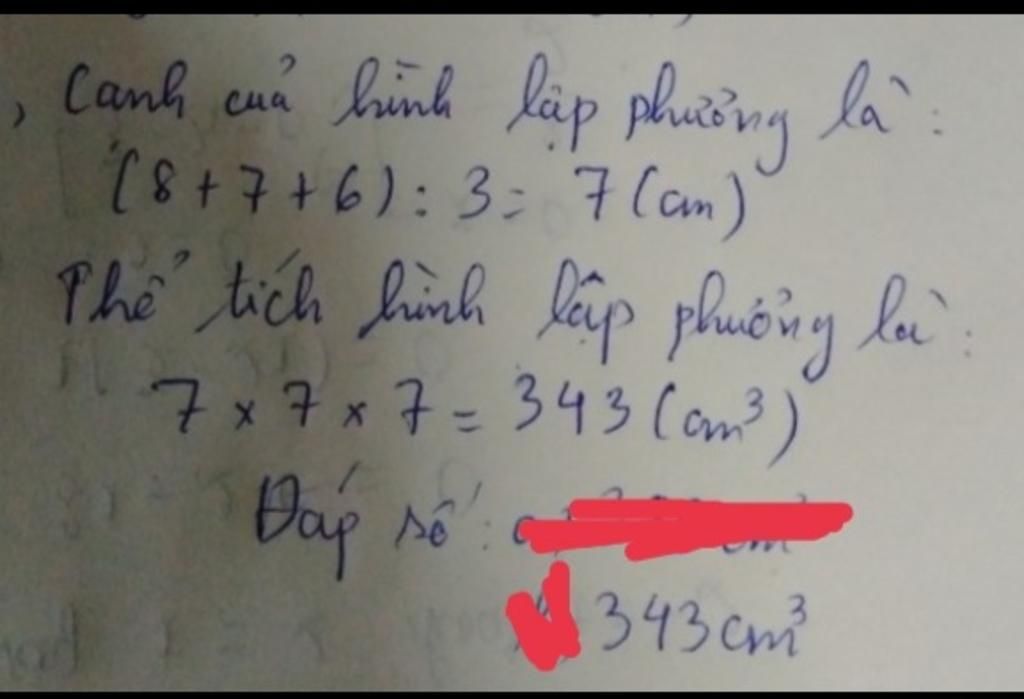 , Cạnh của hình lập phương là:
(8+7+6) : 3 = 7 (cm)
Thể tích hình lập phương là:
7 x 7 x 7 = 343 (cm³)
Đáp số: cm³
343 cm³